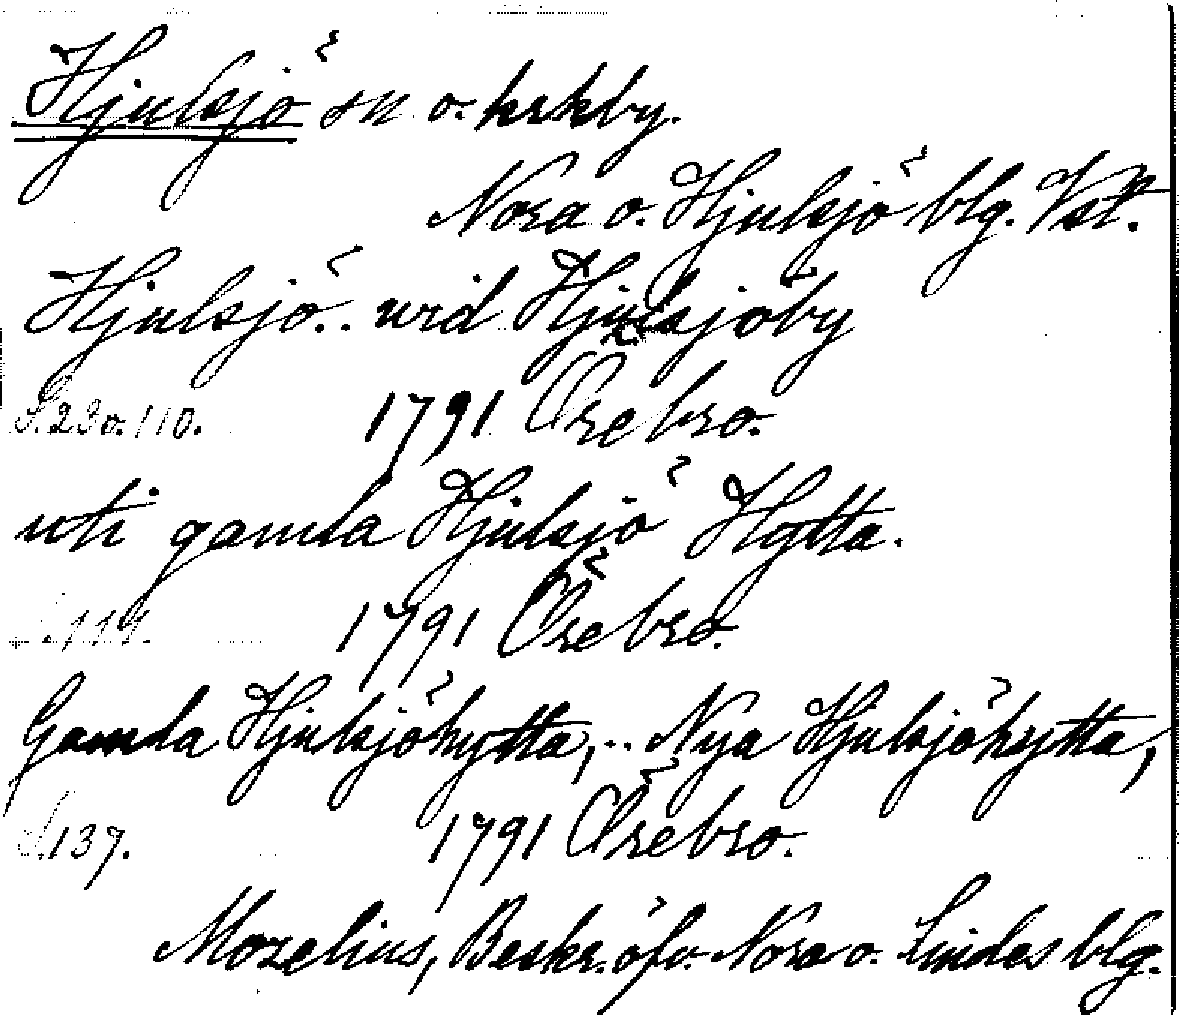 Hjulsjö sn o. krkby.
Nora o. Hjulsjö blg. Vstl.
Hjulsjö.. wid Hjulsjöby
S. 23 o. 110. 1791 Örebro.
uti gamla Hjulsjö Hytta.
S. 114. 1791 Örebro.
Gamla Hjulsjöhytta,.. Nya Hjulsjöhytta,
S. 137. 1791 Örebro.
Mozelius, Beskr. öfv. Nora o. Lindes blg.